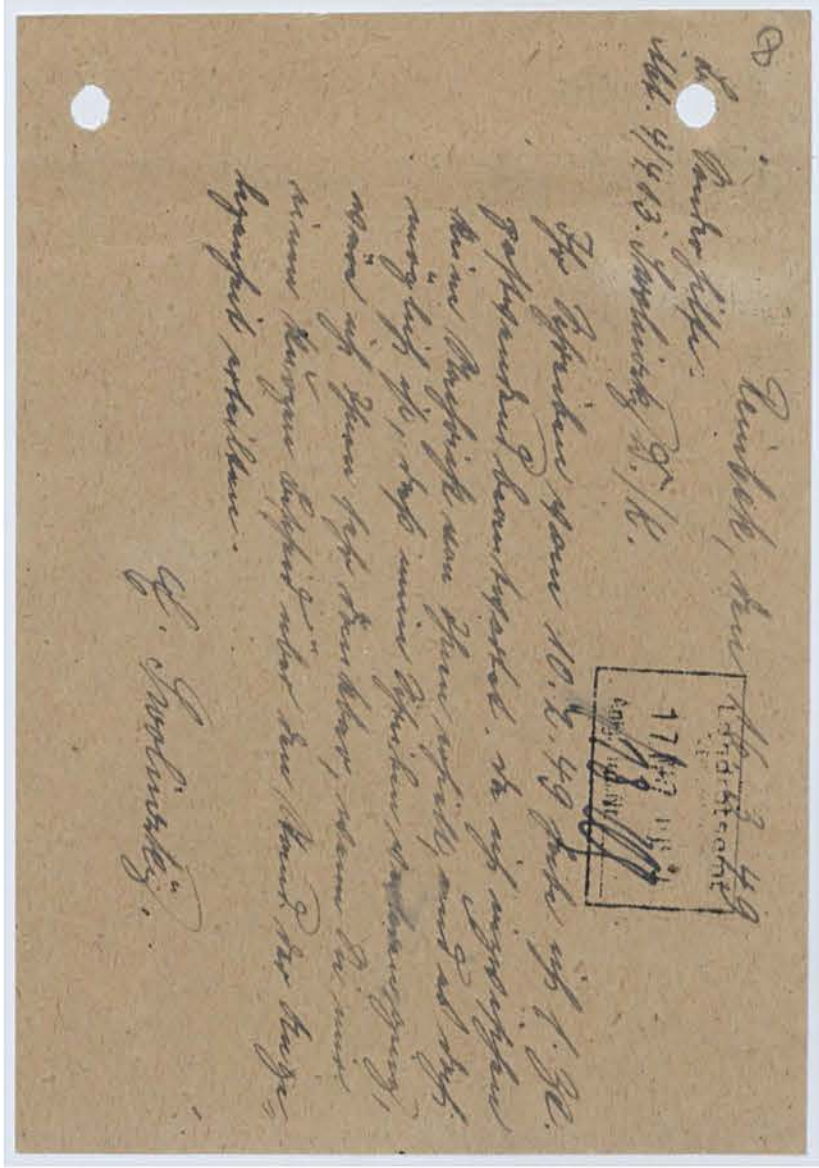 Reinbek, den 16.3.49
Landratsamt
17
Sonderhilfe.
Abt. 4/463.
Ihr Schreiben vom 10.2.49 habe ich s. Zt.
postwendend beantwortet. Da ich inzwischen
keine Nachricht von Ihnen erhielt, und es doch
möglich ist, daß mein Schreiben verlorenging,
wäre ich Ihnen sehr dankbar, wenn Sie mir
einen kurzen Bescheid über den Stand der Ange=
legenheit erteilten.
Swolinsky.